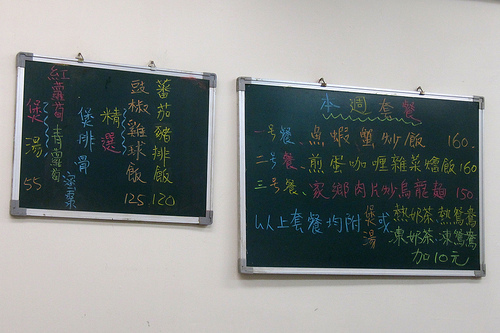 番茄豬排飯 120
豉椒雞球飯 125
精選
煲排骨
紅蘿蔔青蘿蔔
煲湯 55
本週套餐
一号餐、魚蝦蟹炒飯 160.
二号餐、煎蛋咖喱雜菜燴飯 160
三号餐、家鄉肉片炒烏龍麵 150
以上套餐均附煲湯或熱奶茶.熱鴛鴦
凍奶茶.凍鴛鴦
加10元